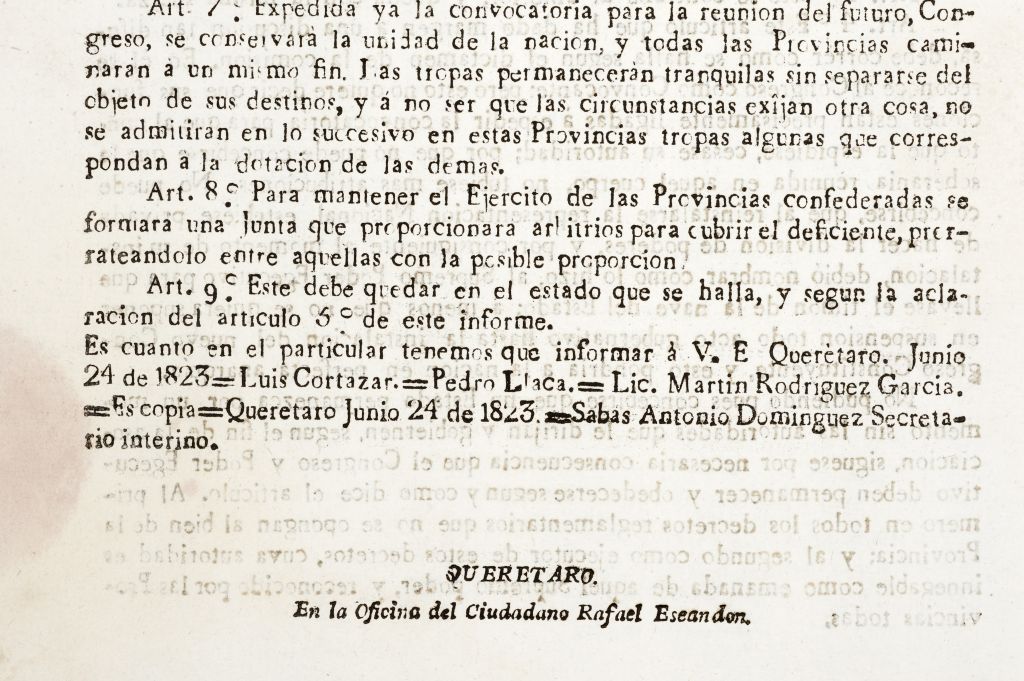 Art. 7.º Expedida ya la convocatoria para la reunion del futuro, Con-
greso, se conservará la unidad de la nacion, y todas las Provincias cami-
naran á un mismo fin. Las tropas permaneceran tranquilas sin separarse del
objeto de sus destinos, y á no ser que las circunstancias exijan otra cosa, no
se admitiran en lo succesivo en estas Provincias tropas algunas que corres-
pondan á la dotacion de las demas.
Art. 8.º Para mantener el Ejercito de las Provincias confederadas se
formará una Junta que proporcionara arbitrios para cubrir el deficiente, pror-
rateandolo entre aquellas con la posible proporcion.
Art. 9.º Este debe quedar en el estado que se halla, y segun la acla-
racion del articulo 5.º de este informe.
Es cuanto en el particular tenemos que informar á V. E Queretaro. Junio
24 de 1823=Luis Cortazar.=Pedro Llaca.=Lic. Martin Rodriguez Garcia.
=Es copia=Queretaro Junio 24 de 1823.=Sabas Antonio Dominguez Secreta-
rio interino.
QUERETARO.
En la Oficina del Ciudadano Rafael Eseandon.